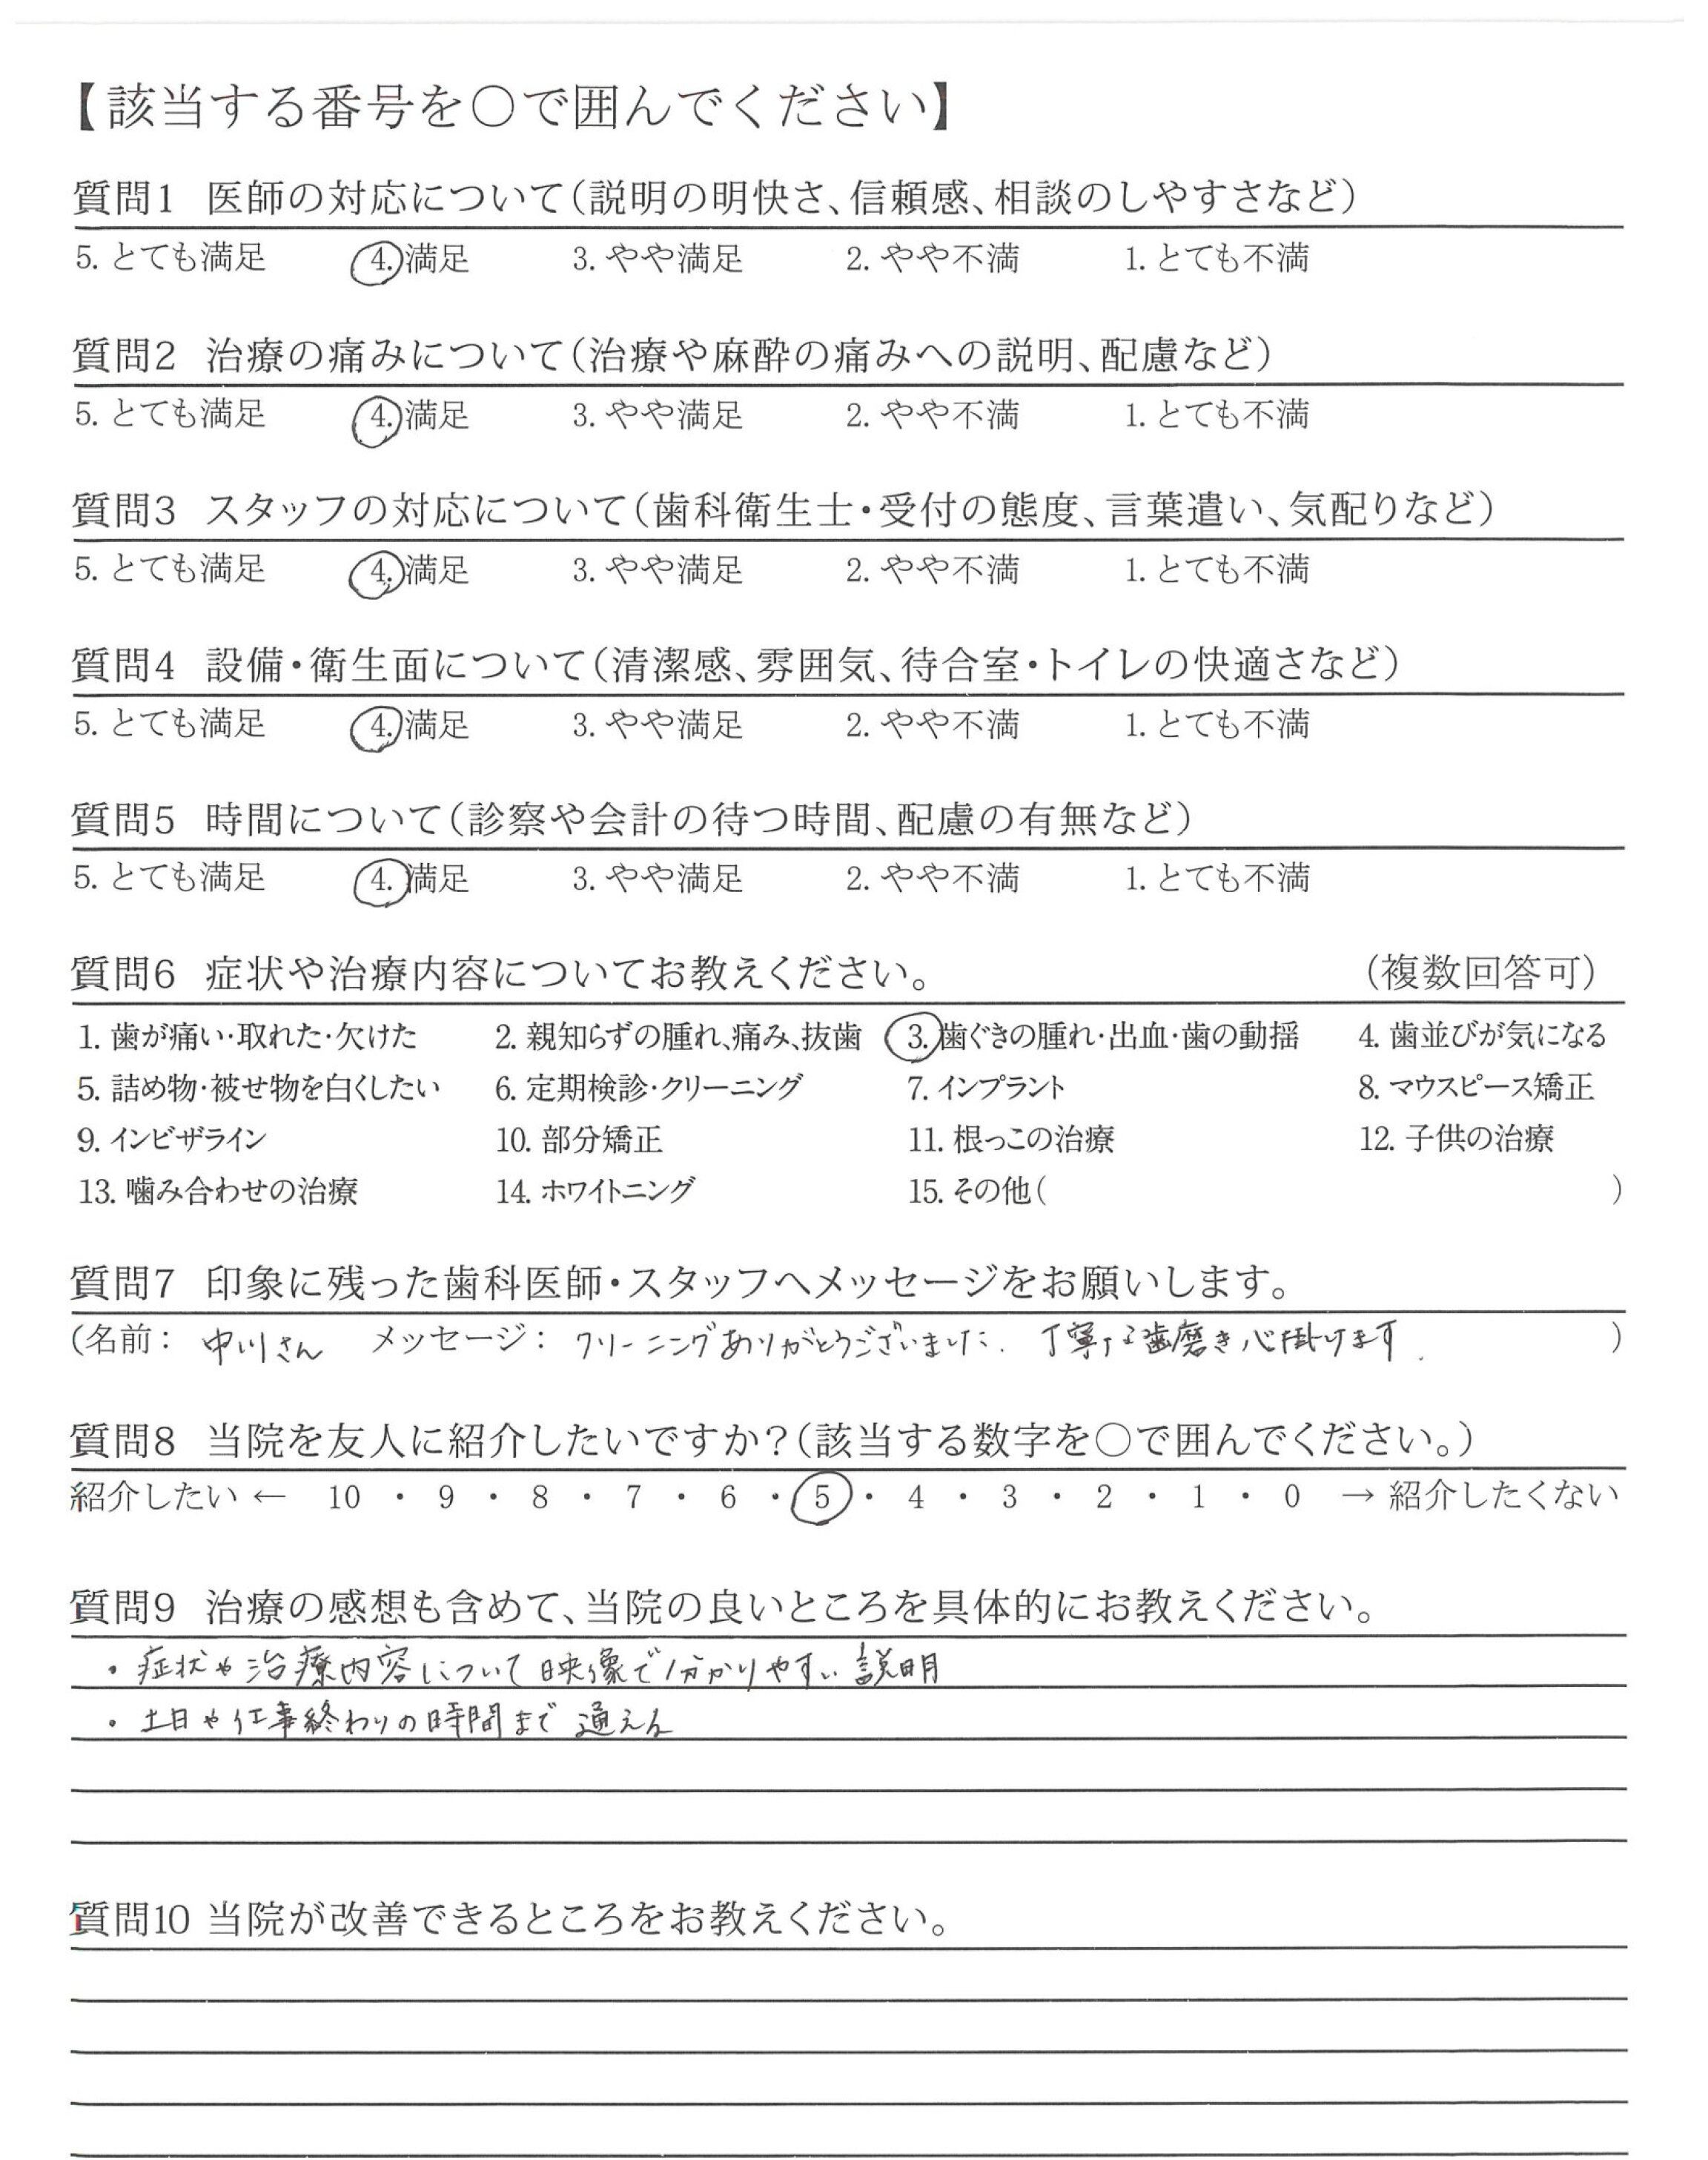 【該当する番号を○で囲んでください】
質問1 医師の対応について(説明の明快さ、信頼感、相談のしやすさなど)
5. とても満足 4. 満足 3. やや満足 2. やや不満 1. とても不満
質問2 治療の痛みについて(治療や麻酔の痛みへの説明、配慮など)
5. とても満足 4. 満足 3. やや満足 2. やや不満 1. とても不満
質問3 スタッフの対応について(歯科衛生士・受付の態度、言葉遣い、気配りなど)
5. とても満足 4. 満足 3. やや満足 2. やや不満 1. とても不満
質問4 設備・衛生面について(清潔感、雰囲気、待合室・トイレの快適さなど)
5. とても満足 4. 満足 3. やや満足 2. やや不満 1. とても不満
質問5 時間について(診察や会計の待つ時間、配慮の有無など)
5. とても満足 4. 満足 3. やや満足 2. やや不満 1. とても不満
質問6 症状や治療内容についてお教えください。 (複数回答可)
1. 歯が痛い・取れた・欠けた 2. 親知らずの腫れ、痛み、抜歯 3. 歯ぐきの腫れ・出血・歯の動揺 4. 歯並びが気になる
5. 詰め物・被せ物を白くしたい 6. 定期検診・クリーニング 7. インプラント 8. マウスピース矯正
9. インビザライン 10. 部分矯正 11. 根っこの治療 12. 子供の治療
13. 噛み合わせの治療 14. ホワイトニング 15. その他( )
質問7 印象に残った歯科医師・スタッフへメッセージをお願いします。
(名前: 中川さん メッセージ: クリーニングありがとうございました. 丁寧な歯磨き心掛けます. )
質問8 当院を友人に紹介したいですか?(該当する数字を○で囲んでください。)
紹介したい ← 10 ・ 9 ・ 8 ・ 7 ・ 6 ・ 5 ・ 4 ・ 3 ・ 2 ・ 1 ・ 0 → 紹介したくない
質問9 治療の感想も含めて、当院の良いところを具体的にお教えください。
・症状や治療内容について映像で分かりやすい説明
・土日や仕事終わりの時間まで通える
質問10 当院が改善できるところをお教えください。